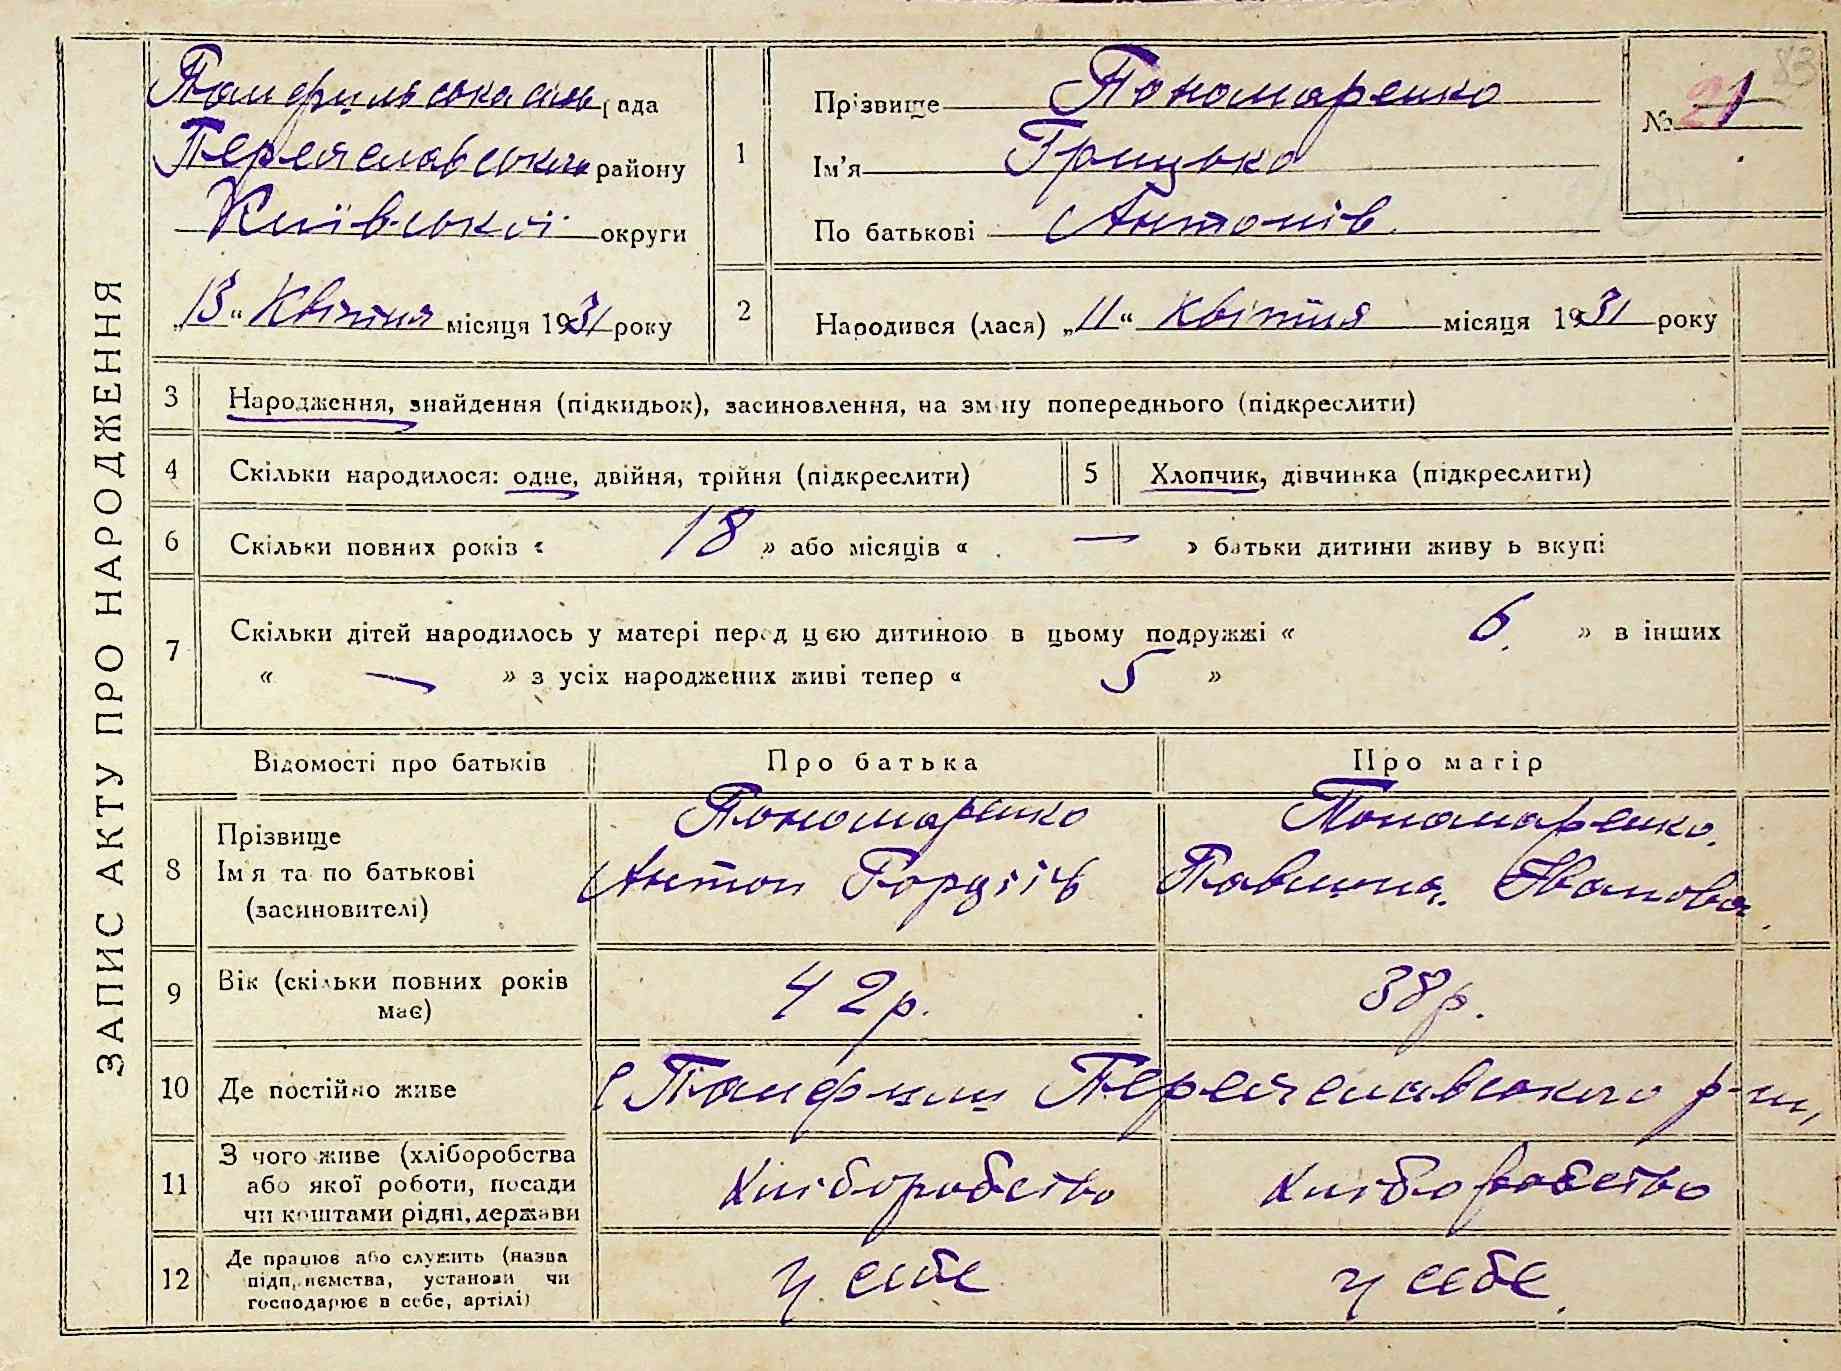 ЗАПИС АКТУ ПРО НАРОДЖЕННЯ
Панфильська сіль рада
Переяславського району
Київської округи
„13“ Квітня місяця 1931 року
1
Прізвище Пономаренко
Ім'я Грицько
По батькові Антонів
№ 21
83
2
Народився (лася) „11“ квітня місяця 1931 року
3 Народження, знайдення (підкидьок), засиновлення, на зміну попереднього (підкреслити)
4 Скільки народилося: одне, двійня, трійня (підкреслити)
5 Хлопчик, дівчинка (підкреслити)
6 Скільки повних років « 18 » або місяців « — » батьки дитини живуть вкупі
7 Скільки дітей народилось у матері перед цією дитиною в цьому подружжі « 6 » в інших
« — » з усіх народжених живі тепер « 5 »
Відомості про батьків Про батька Про матір
8 Прізвище Ім'я та по батькові (засиновителі)
Пономаренко
Антон
Пономаренко
Іванова
9 Вік (скільки повних років має) 42 р. 38 р.
10 Де постійно живе с Панфили Переяславського р-ну,
11 З чого живе (хліборобства або якої роботи, посади чи коштами рідні, держави
хліборобство хліборобство
12 Де працює або служить (назва підприємства, установи чи господарює в себе, артілі)
у себе у себе